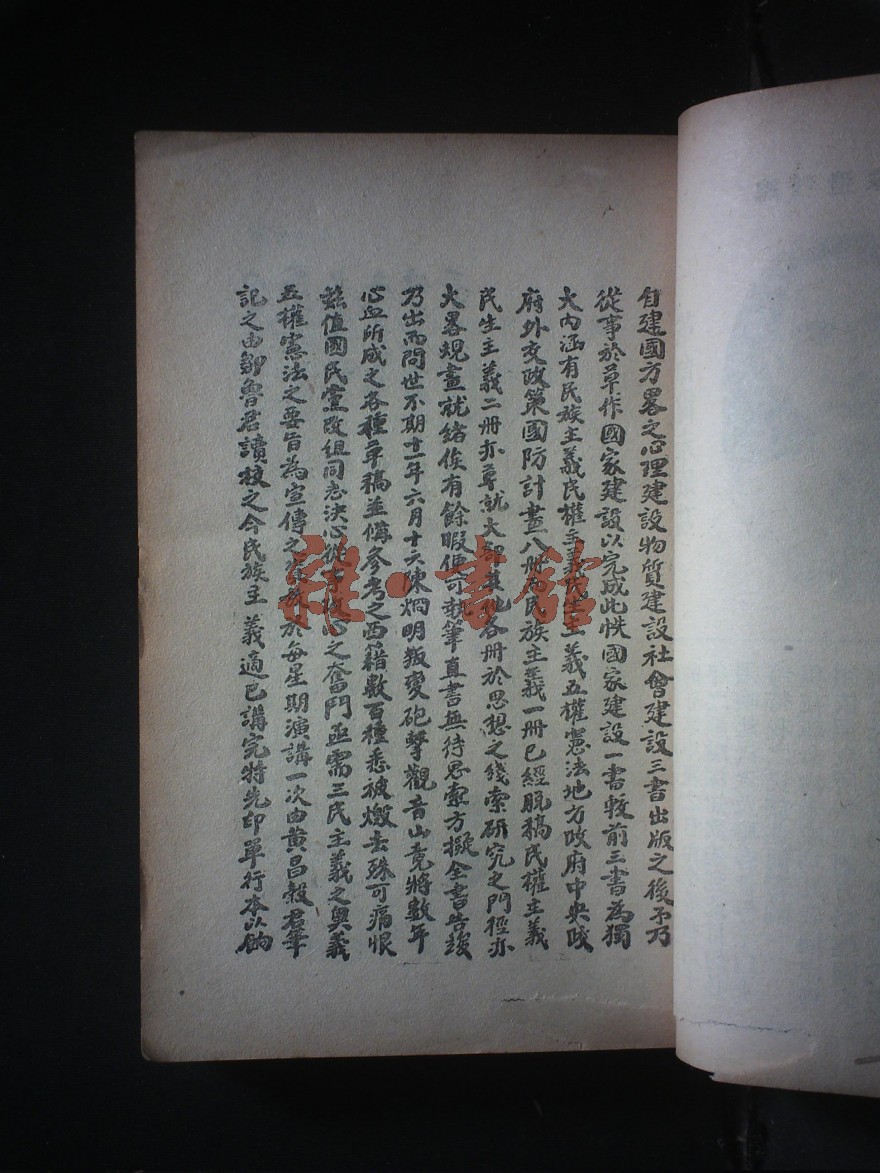 自建國方畧之心理建設物質建設社會建設三書出版之後予乃
從事於草作國家建設以完成此帙國家建設一書較前三書為獨
大內涵有民族主義民權主義民生主義五權憲法地方政府中央政
府外交政策國防計畫八冊而民族主義一冊已經脫稿民權主義
民生主義二冊亦草就大部其他各冊於思想之綫索研究之門徑亦
大畧規畫就緒俟有餘暇便可執筆直書無待思索方擬全書告竣
乃出而問世不期十一年六月十六陳烱明叛變砲擊觀音山竟將數年
心血所成之各種草稿並備參考之西籍數百種悉被燬去殊可痛恨
茲值國民黨改組同志決心從事攻心之奮鬥亟需三民主義之奧義
五權憲法之要旨為宣傳之資故於每星期演講一次由黃昌穀君筆
記之由鄒魯君讀校之今民族主義適已講完特先印單行本以餉
雜·書館